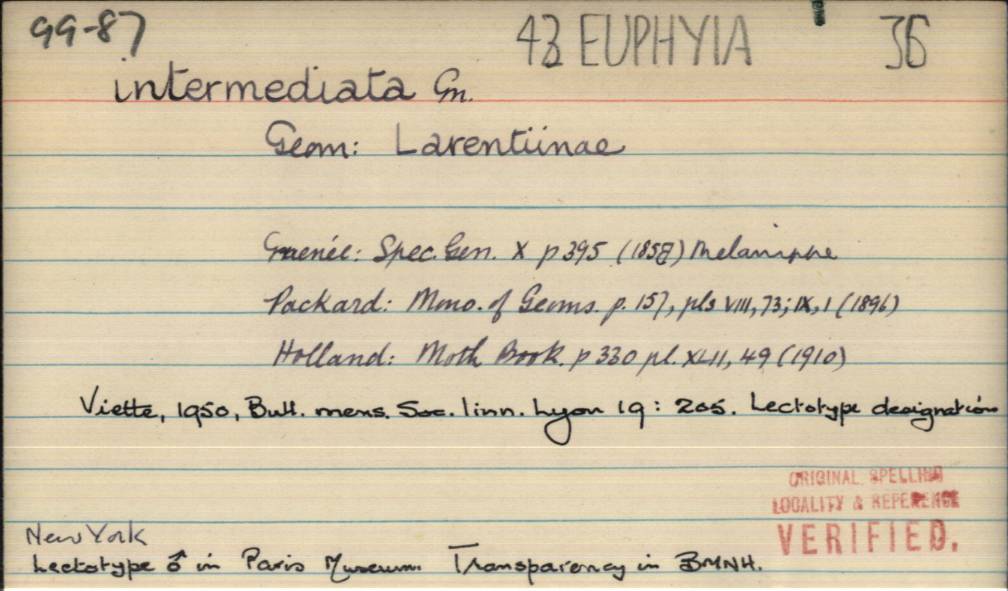 99-87
43 EUPHYIA 36
intermediata Gn.
Geom: Larentiinae
Guenée: Spec. Gen. X p 395 (1858) Melanippe
Packard: Mono. of Geoms. p. 157, pls VIII, 73; IX, 1 (1896)
Holland: Moth Book. p 330 pl. XLII, 49 (1910)
Viette, 1950, Bull. mens. Soc. linn. Lyon 19: 205. Lectotype designation
ORIGINAL SPELLING
LOCALITY & REFERENCE
VERIFIED.
New York
Lectotype ♂ in Paris Museum. Transparency in BMNH.